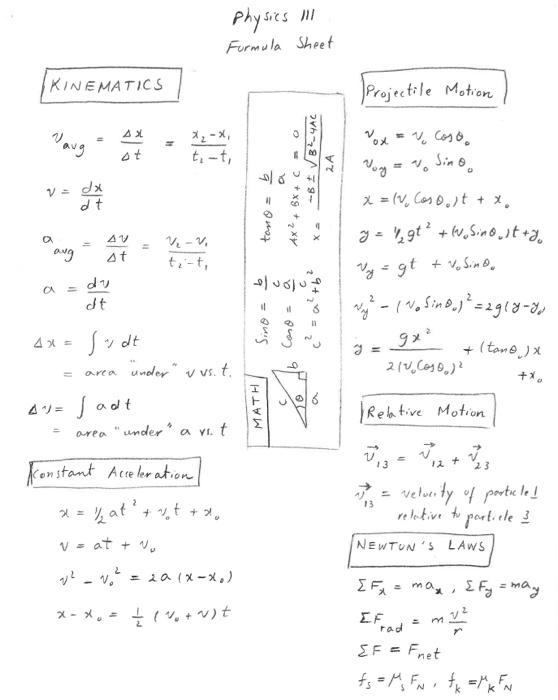 Physics 111
Formula Sheet
KINEMATICS
v_avg = Δx/Δt = x₂-x₁/t₂-t₁
v = dx/dt
a_avg = Δv/Δt = v₂-v₁/t₂-t₁
a = dv/dt
Δx = ∫ v dt
= area "under" v vs. t.
Δv = ∫ a dt
= area "under" a vs. t
Constant Acceleration
x = ½ at² + v₀t + x₀
v = at + v₀
v² - v₀² = 2a (x-x₀)
x-x₀ = 1/2 (v₀ + v) t
MATH
c b
θ
a
Sinθ = b/c
Cosθ = a/c
c² = a² + b²
tanθ = b/a
Ax² + Bx + C = 0
x = -B ± √B²-4AC / 2A
Projectile Motion
v₀ₓ = v₀ Cosθ₀
v₀y = v₀ Sinθ₀
x = (v₀ Cosθ₀)t + x₀
y = ½gt² + (v₀Sinθ₀)t + y₀
v_y = gt + v₀Sinθ₀
v_y² - (v₀Sinθ₀)² = 2g(y-y₀)
y = gx²/2(v₀Cosθ₀)² + (tanθ₀)x
+x₀
Relative Motion
v⃗₁₃ = v⃗₁₂ + v⃗₂₃
v⃗₁₃ = velocity of particle 1
relative to particle 3
NEWTON'S LAWS
ΣFₓ = maₓ , ΣF_y = ma_y
ΣF_rad = m v²/r
ΣF = F_net
f_s = μ_s F_N , f_k = μ_k F_N